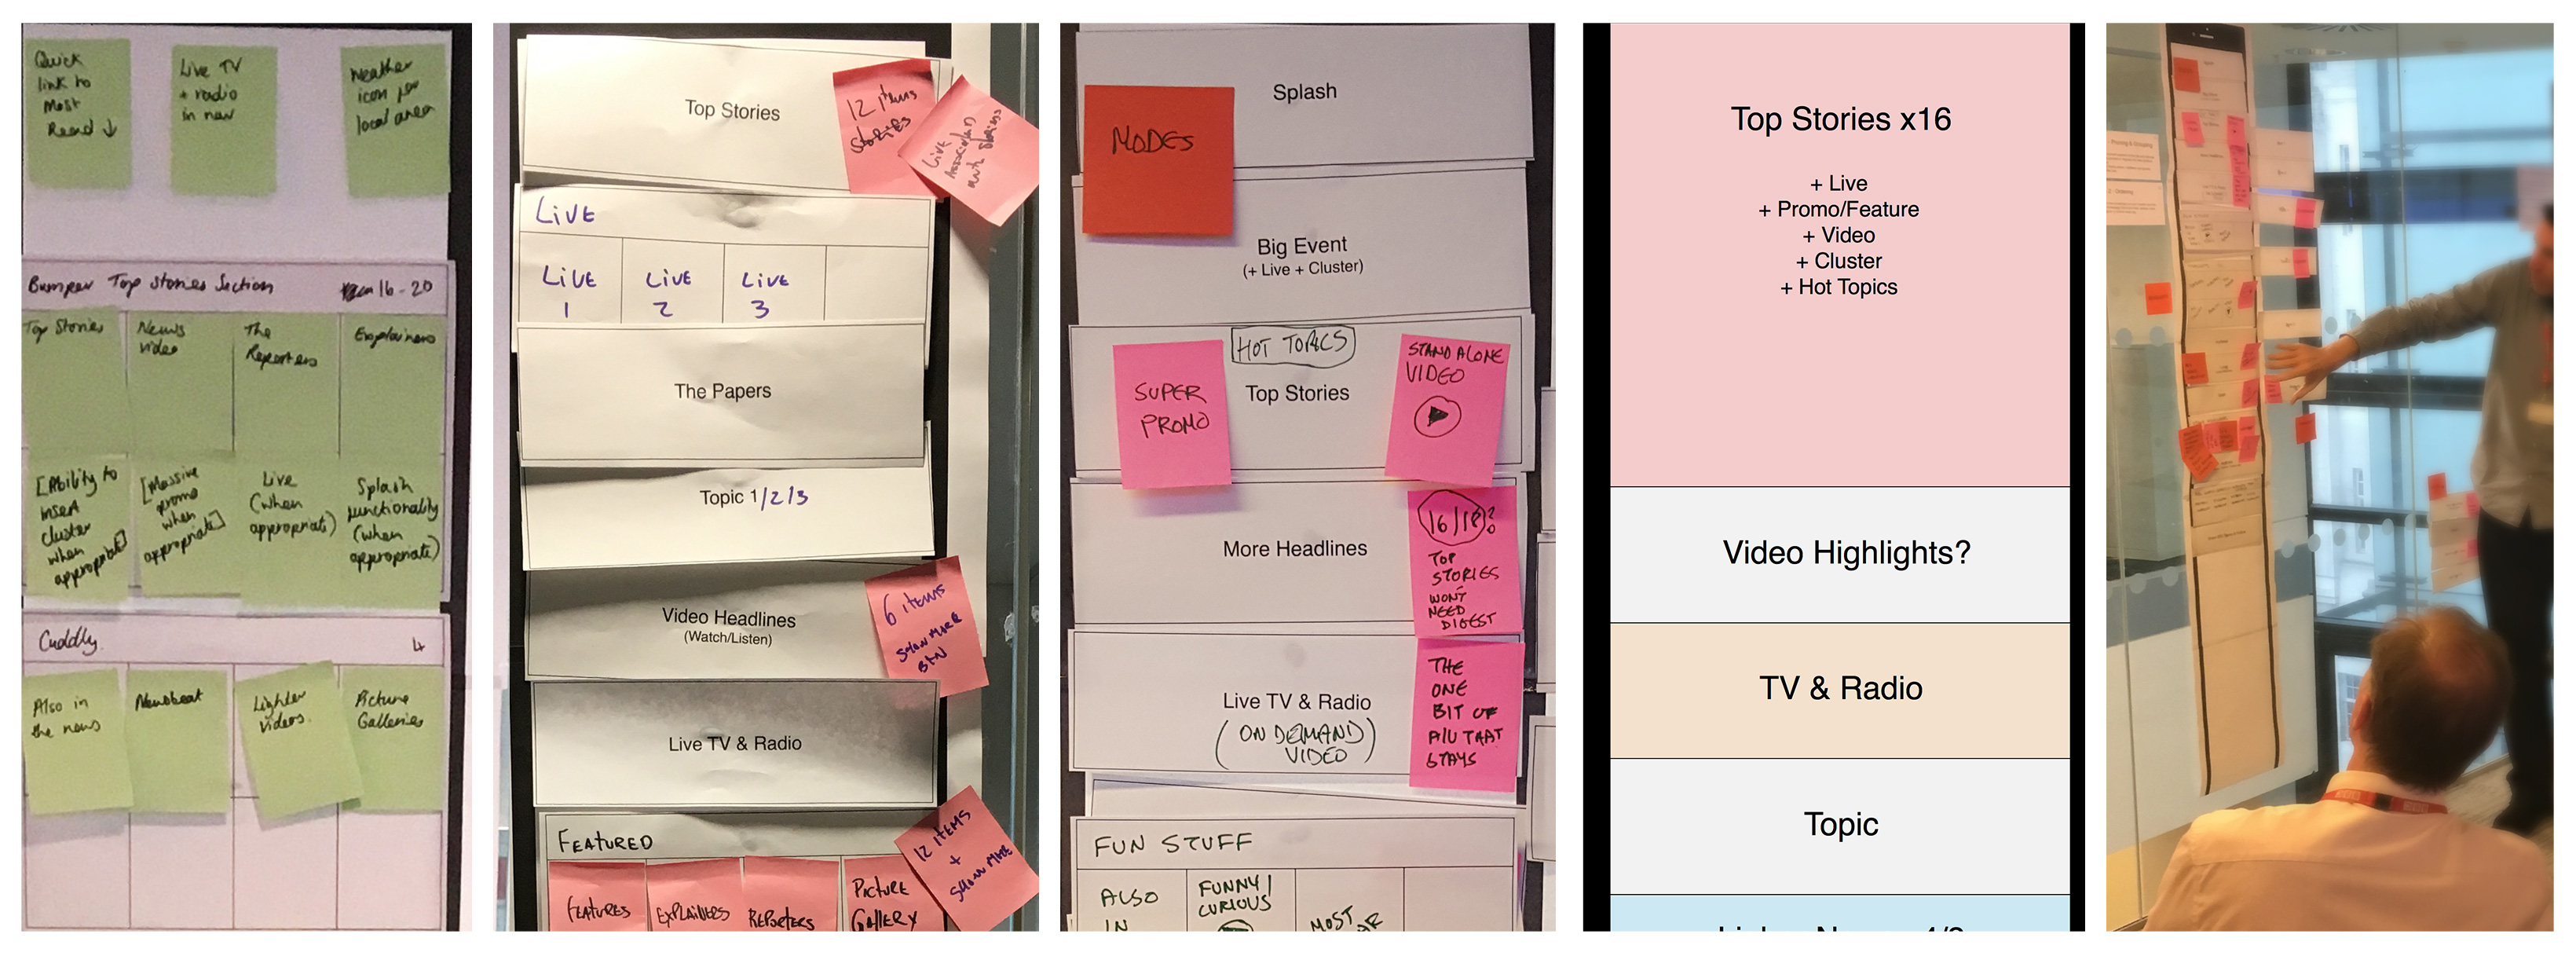 Quick
link to
Most
Read ↓
Live TV
+ radio
in nav
Weather
icon for
local area
Bumper Top Stories Section
16-20
Top Stories
News
video
The
Reporters
Explainers
[Ability to
insert
cluster
when
appropriate]
[Massive
promo
when
appropriate]
Live
(when
appropriate)
Splash
functionality
(when
appropriate)
Cuddly
4
Also in
the news
Newsbeat
Lighter
videos.
Picture
Galleries
Top Stories
12 items
stories
Live
Associated
with stories
LIVE
LIVE
1
LIVE
2
LIVE
3
The Papers
Topic 1/2/3
Video Headlines
(Watch/Listen)
6 items
SHOW MORE
BTN
Live TV & Radio
FEATURED
12 ITEMS
+
SHOW MORE
FEATURES
EXPLAINERS
REPORTERS
PICTURE
GALLERY
Splash
MODES
Big Event
(+ Live + Cluster)
HOT TOPICS
SUPER
PROMO
Top Stories
STAND ALONE
VIDEO
More Headlines
16/18?
TOP
STORIES
WONT
NEED
DIGEST
Live TV & Radio
(ON DEMAND)
VIDEO
THE
ONE
BIT OF
THAT
STAYS
FUN STUFF
ALSO
IN
FUNNY/
CURIOUS
MOST
Top Stories x16
+ Live
+ Promo/Feature
+ Video
+ Cluster
+ Hot Topics
Video Highlights?
TV & Radio
Topic